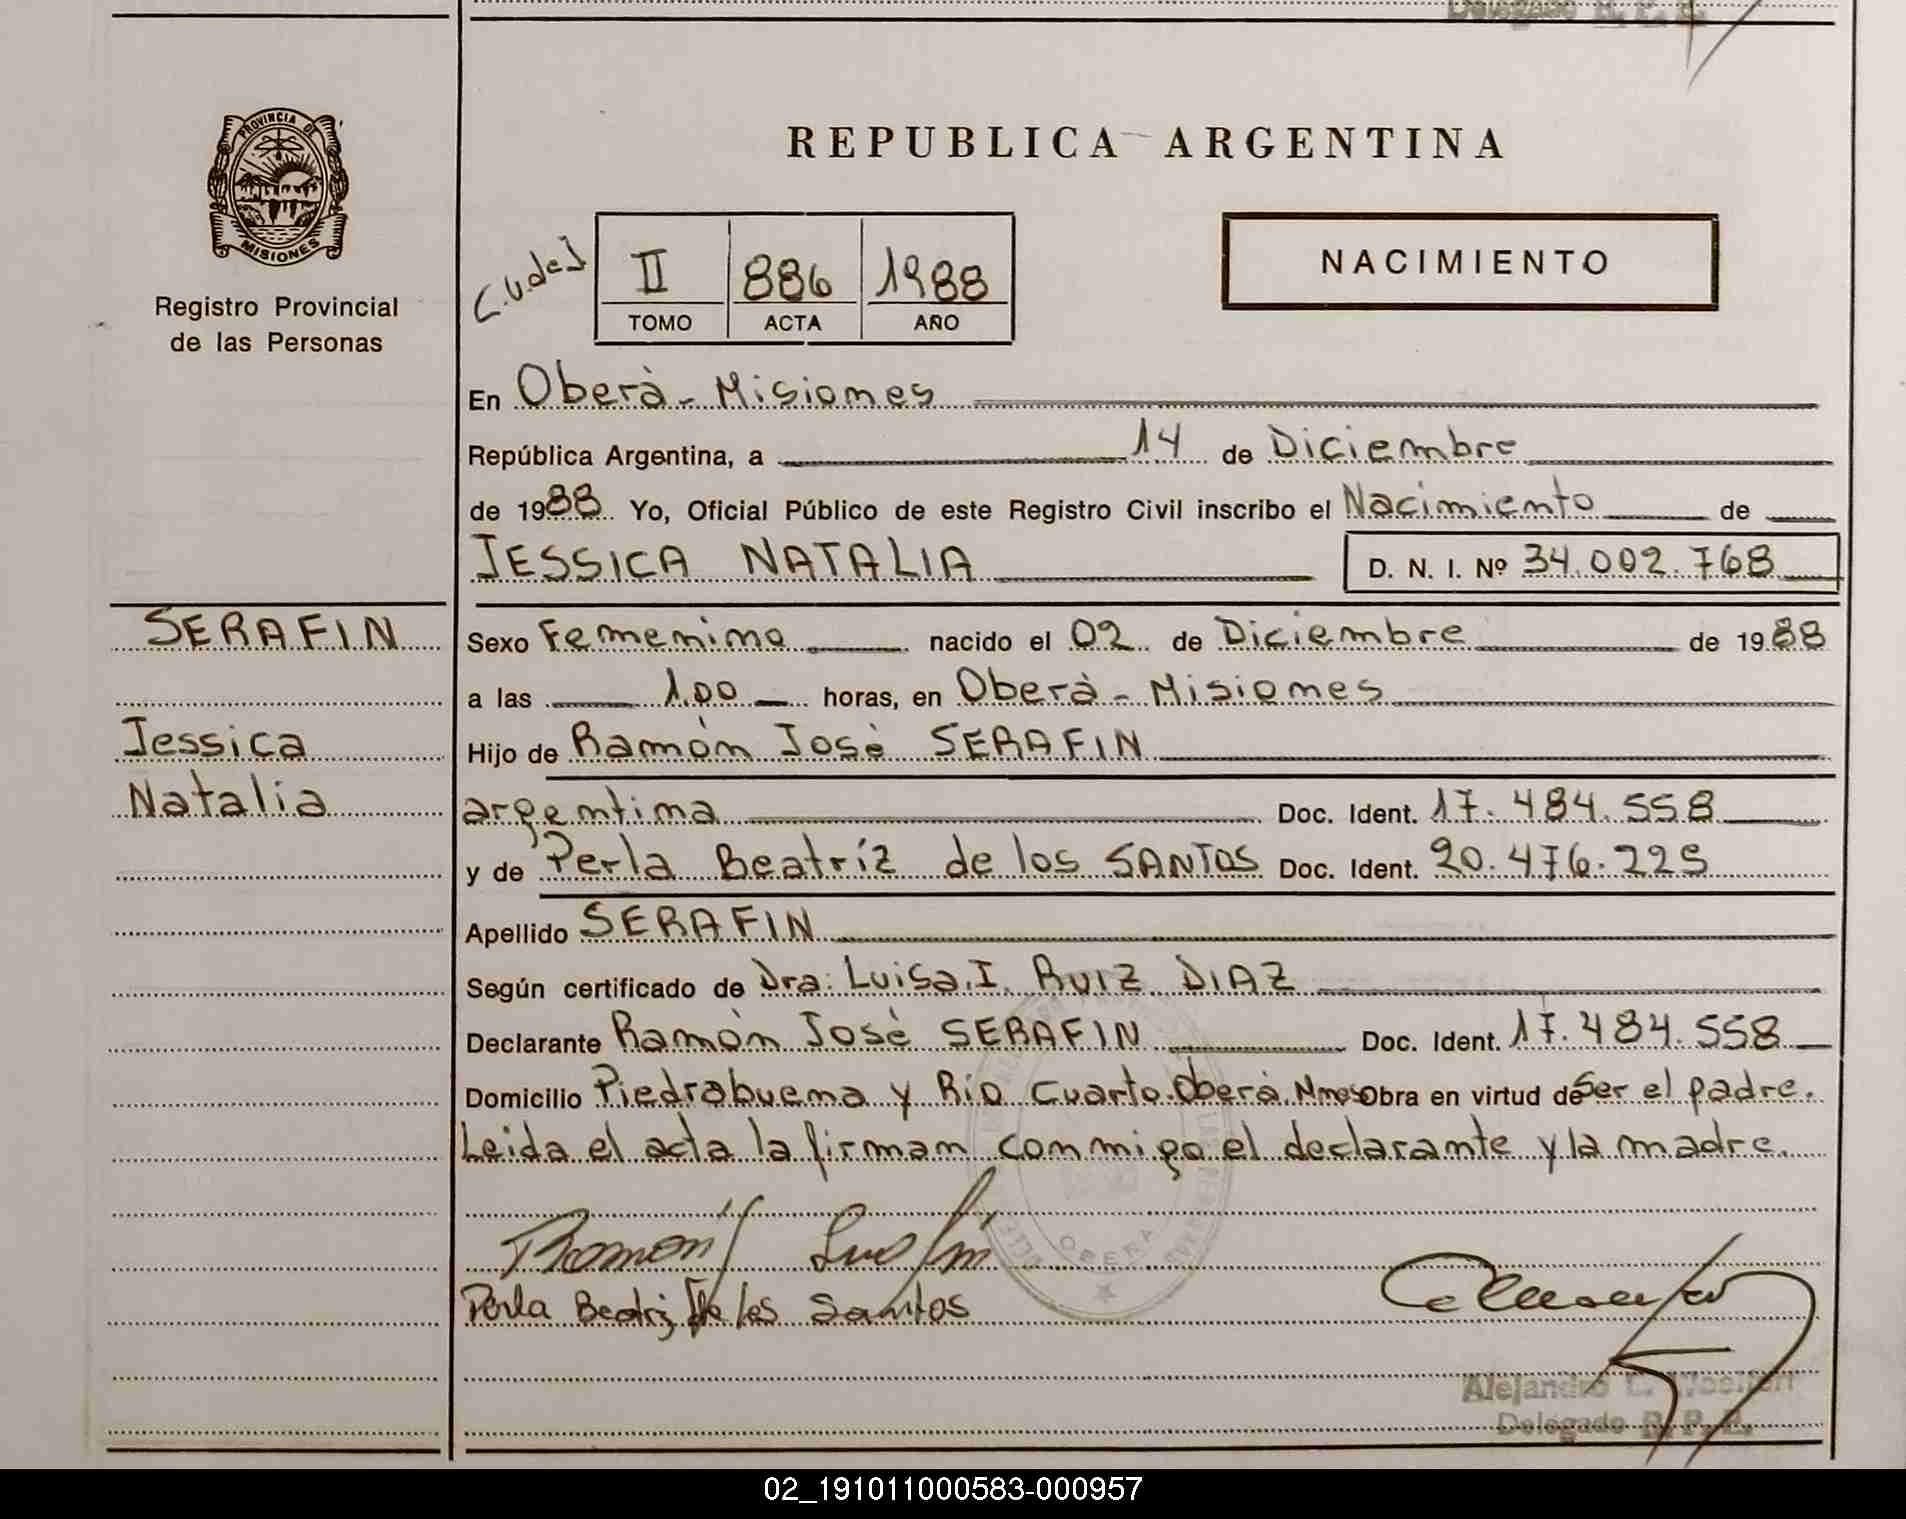 Delegado R. P. P.
PROVINCIA DE
MISIONES
Registro Provincial
de las Personas
REPUBLICA ARGENTINA
Ciudad
II 886 1988
TOMO ACTA AÑO
NACIMIENTO
En Oberà - Misiones
República Argentina, a 14 de Diciembre
de 1988. Yo, Oficial Público de este Registro Civil inscribo el Nacimiento de
JESSICA NATALIA D. N. I. Nº 34.002.768
SERAFIN
Jessica
Natalia
Sexo Femenino nacido el 02 de Diciembre de 1988
a las 1.00 horas, en Oberà - Misiones
Hijo de Ramón José SERAFIN
argentina Doc. Ident. 17.484.558
y de Perla Beatríz de los SANTOS Doc. Ident. 20.476.225
Apellido SERAFIN
Según certificado de Dra: Luisa.I. RUIZ DIAZ
Declarante Ramòn Josè SERAFIN Doc. Ident. 17.484.558
Domicilio Piedrabuena y Rio Cuarto.Oberà.Mnes Obra en virtud de Ser el padre.
Leida el acta la firman conmigo el declarante y la madre.
OBERA
Ramon J Serafin
Perla Beatriz De los Santos
Alejandro
Delegado R. P. P.
02_191011000583-000957